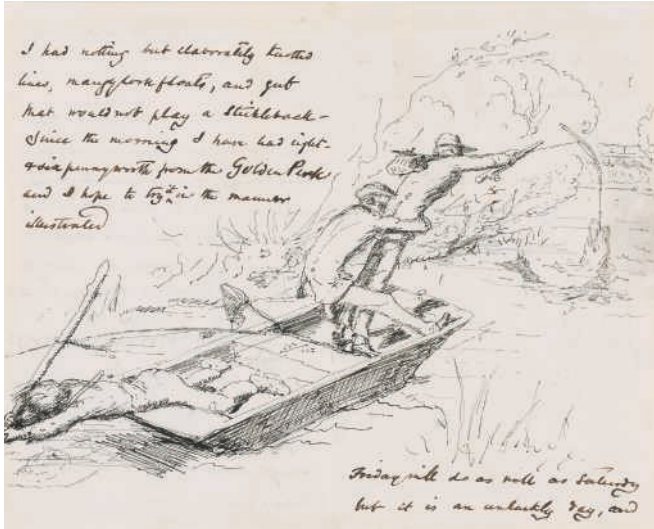 I had nothing but elaborately knotted
lines, mangy cork floats, and gut
that would not play a Stickleback –
Since the morning I have had eight-
& sixpennyworth from the Golden Perch
and I hope to try it in the manner
illustrated
Friday will do as well as Saturday
but it is an unluckly day, and